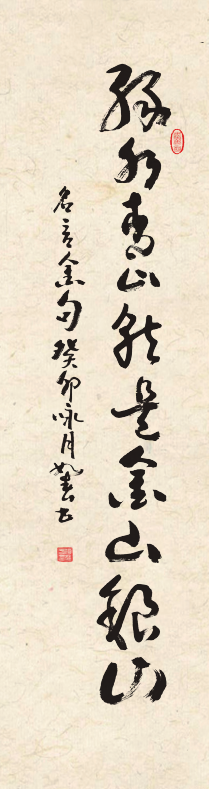 綠水青山就是金山銀山
名言金句癸卯咏月书